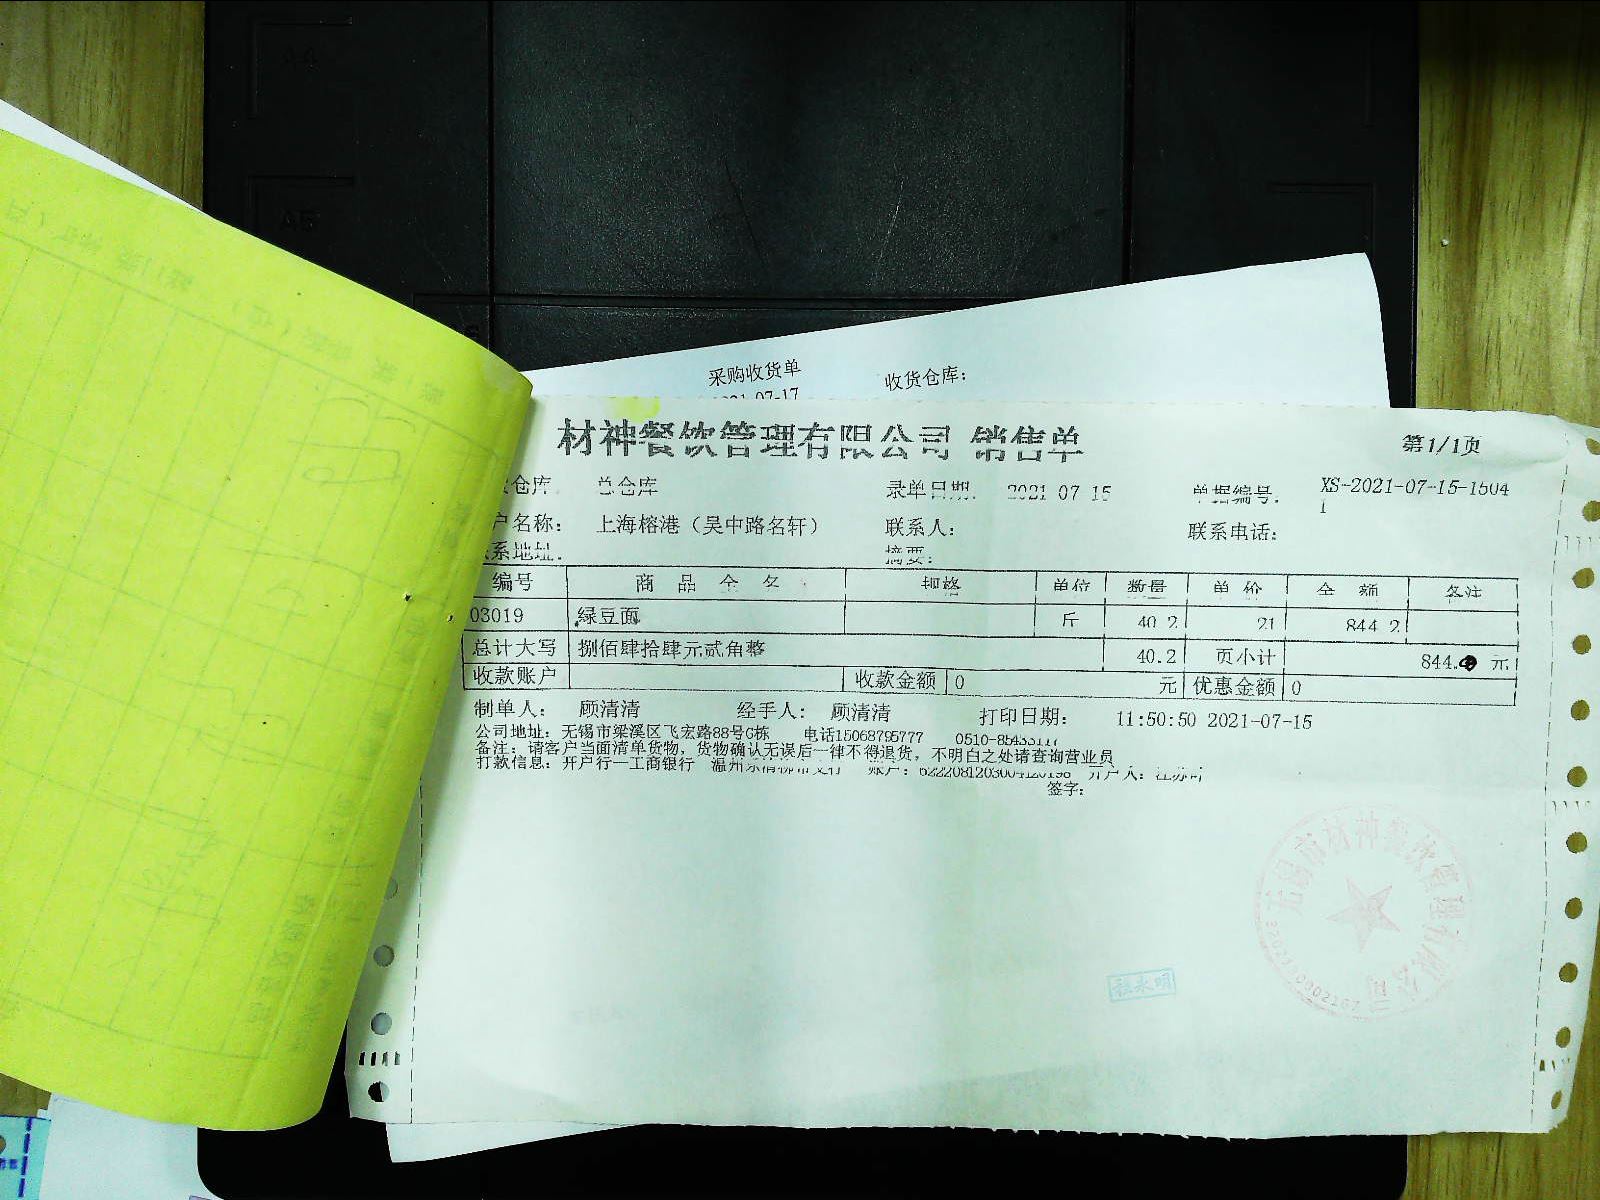 采购收货单 收货仓库:
2021-07-17
材神餐饮管理有限公司 销售单 第1/1页
仓库: 总仓库 录单日期: 2021-07-15 单据编号: XS-2021-07-15-1504
1
户名称: 上海榕港（吴中路名轩） 联系人: 联系电话:
系地址: 摘要:
编号 商品全名 规格 单位 数量 单价 金额 备注
03019 绿豆面 斤 40.2 21 844.2
总计大写 捌佰肆拾肆元贰角整 40.2 页小计 844. 元
收款账户 收款金额 0 元 优惠金额 0
制单人: 顾清清 经手人: 顾清清 打印日期: 11:50:50 2021-07-15
公司地址: 无锡市梁溪区飞宏路88号G栋 电话15068795777
备注: 请客户当面清单货物, 货物确认无误后一律不得退货, 不明白之处请查询营业员
打款信息: 开户行—工商银行 账户: 开户人:
签字:
无锡市材神餐饮管理有限公司
程永明